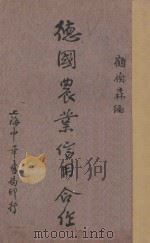 德國農業信用合作
顧復森編
上海中華書局印行